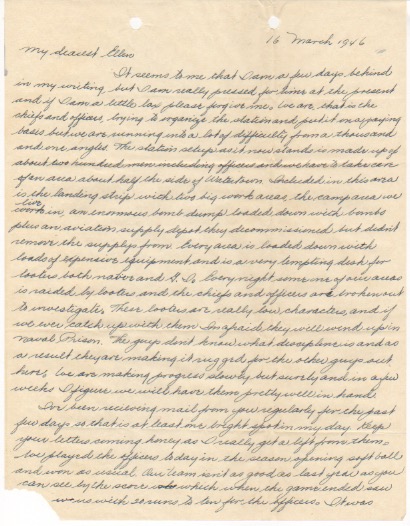 16 March 1946
My dearest Ellen
It seems to me that I am a few days behind
in my writing but I am really pressed for time at the present
and if I am a little lax please forgive me. We are, that is the
chiefs and officers, trying to organize the station and put it on a paying
basis but we are running into a lot of difficulty from a thousand
and one angles. The station setup as it now stands is made up of
about two hundred men including officers and we have to take care
of an area about half the side of Watertown. Included in this area
is the landing strip with two big work areas, the camp area we
live in, an enormous bomb dump loaded down with bombs
plus an aviation supply depot they decommissioned but didn't
remove the supplys from. Every area is loaded down with
loads of expensive equipment and is a very tempting dish for
looters both native and G.I. Every night some one of our areas
is raided by looters and the chiefs and officers are broken out
to investigate. These looters are really low characters, and if
we ever catch up with them I'm afraid they will wind up in
Naval Prison. The guys don't know what discipline is and as
a result they are making it rugged for the other guys out
here. We are making progress slowly but surely and in a few
weeks I figure we will have them pretty well in hand.
I've been receiving mail from you regularly for the past
few days so that is at least one bright spot in my day. Keep
your letters coming honey as I really get a lift from them.
We played the officers today in the season opening soft ball
and won as usual. Our team isnt as good as last year as you
can see by the score which when the game ended saw
us with 20 runs to ten for the officers. It was